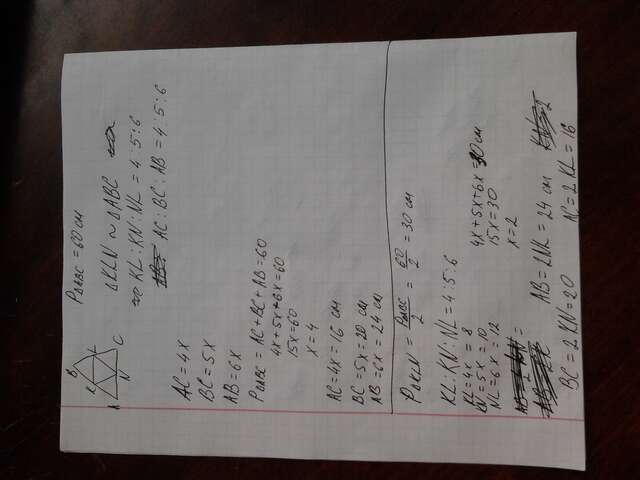 B
K
L
A
N
C
P△ABC = 60 см
△KLN ~ △ABC
KL : KN : NL = 4 : 5 : 6
AC : BC : AB = 4 : 5 : 6
AC = 4x
BC = 5x
AB = 6x
P△ABC = AC + BC + AB = 60
4x + 5x + 6x = 60
15x = 60
x = 4
AC = 4x = 16 см
BC = 5x = 20 см
AB = 6x = 24 см
P△KLN = P△ABC / 2 = 60 / 2 = 30 см
KL : KN : NL = 4 : 5 : 6
KL = 4x = 8
KN = 5x = 10
NL = 6x = 12
4x + 5x + 6x = 30 см
15x = 30
x = 2
AB = 2NL = 24 см
BC = 2 KN = 20
AC = 2 KL = 16